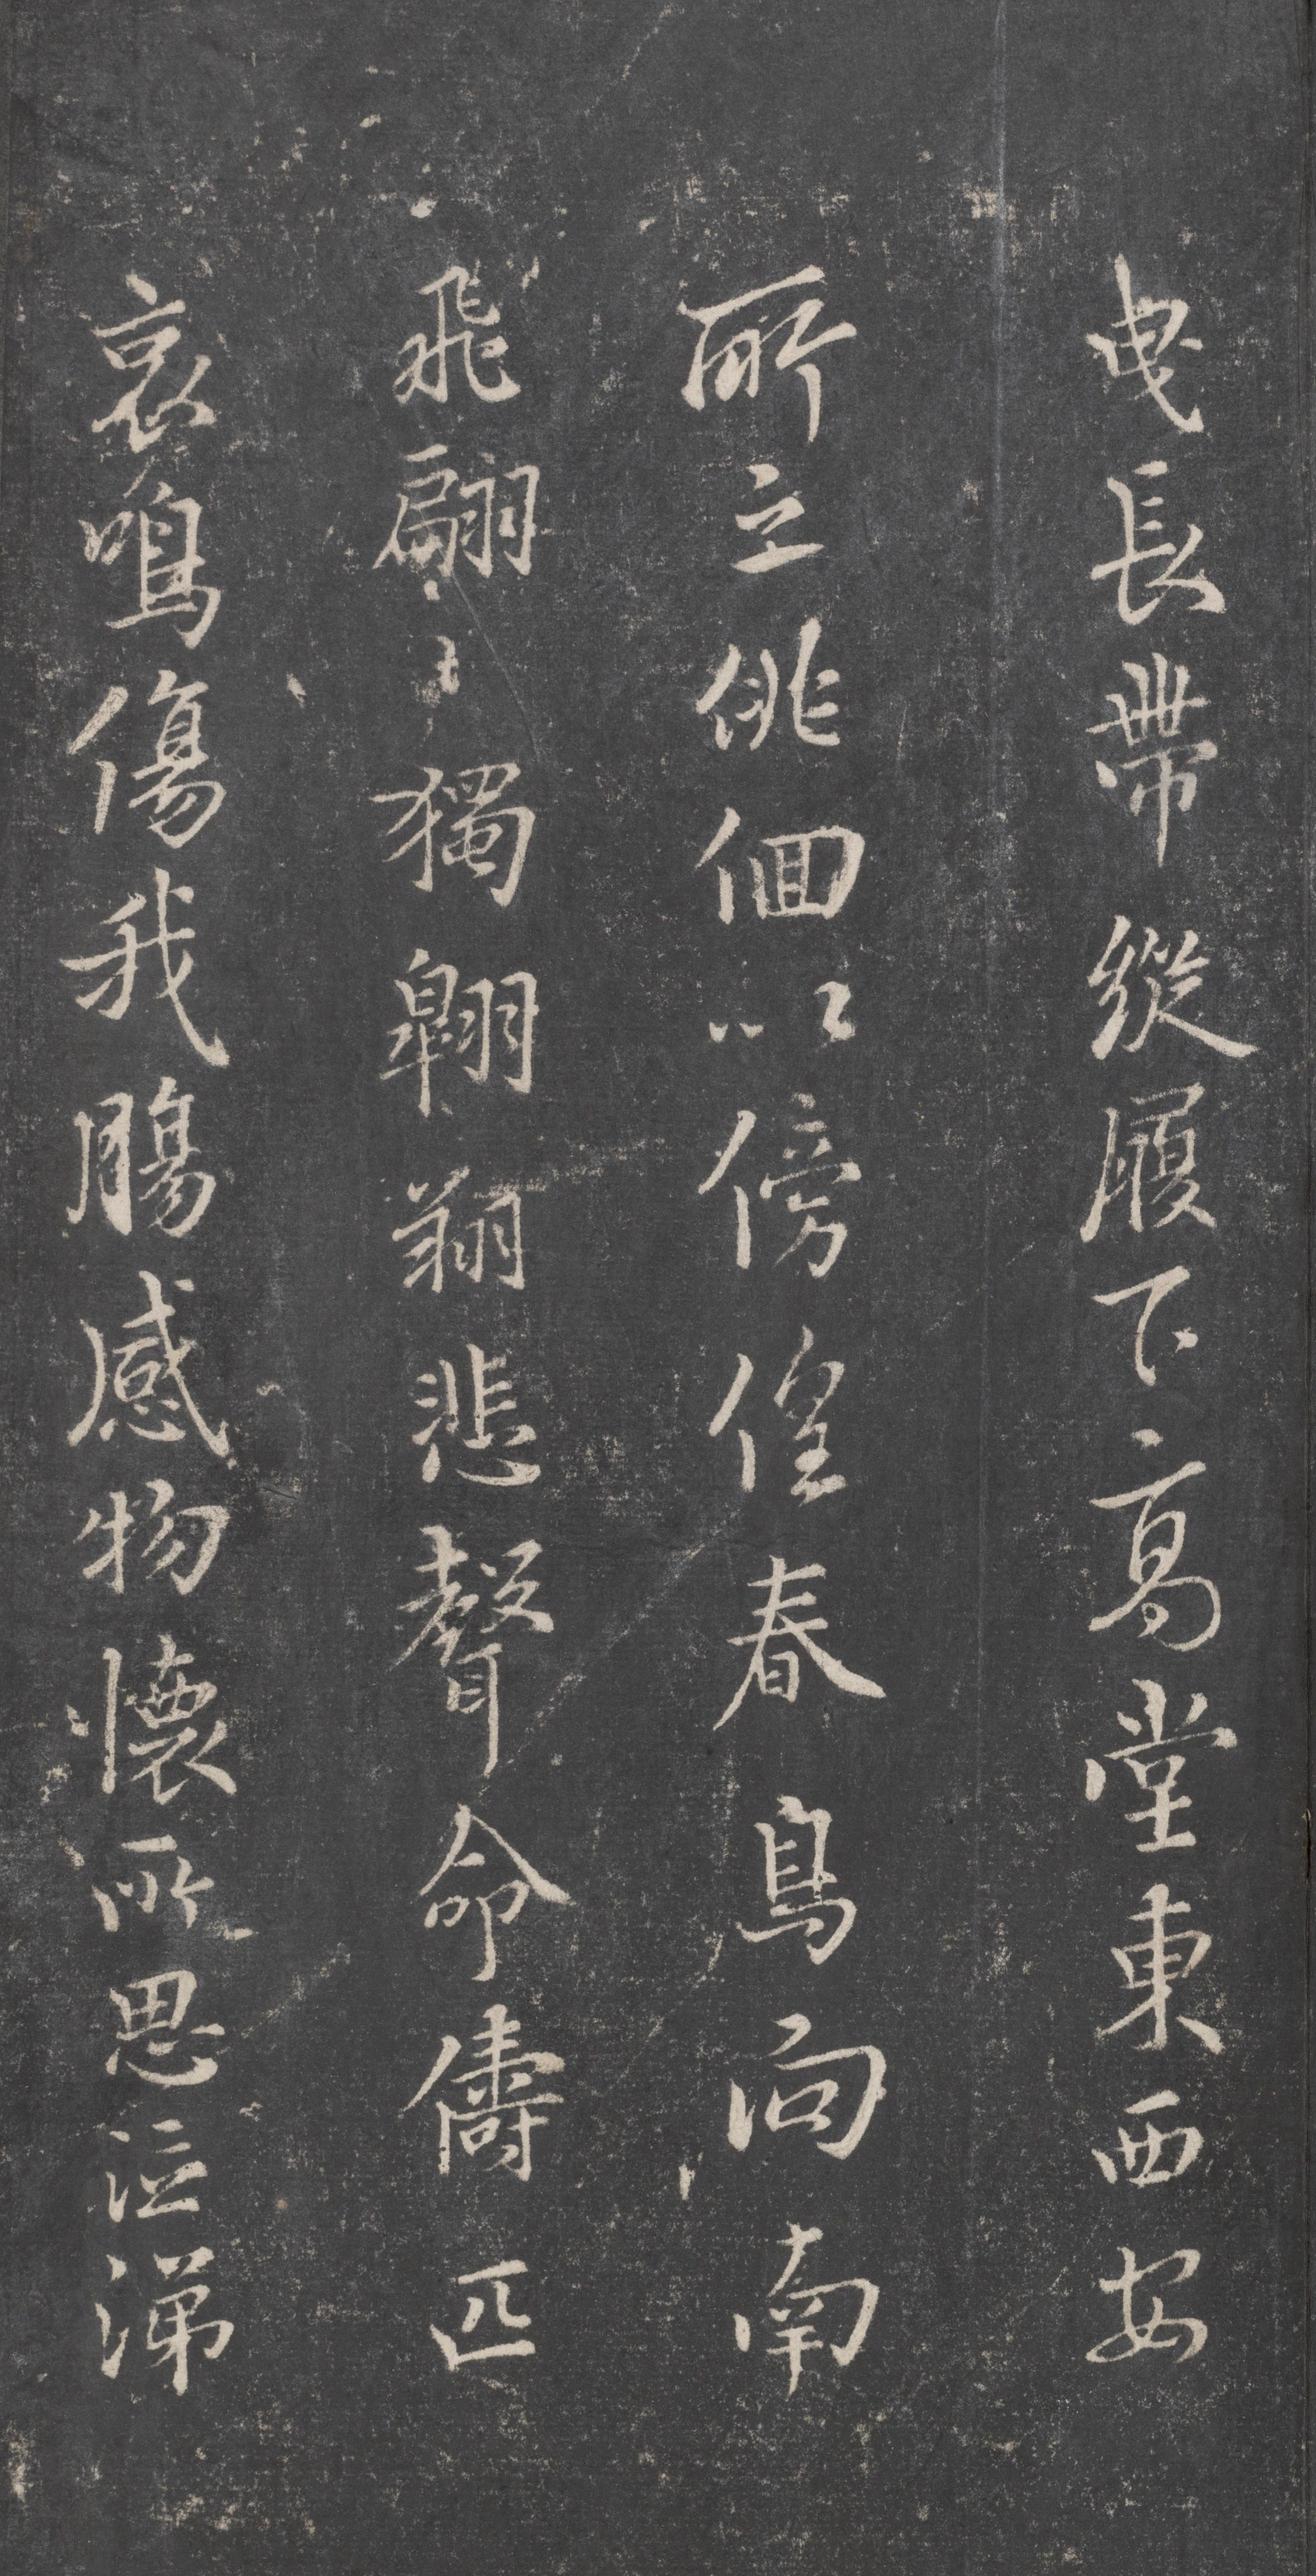 曳長帶縱履下高堂東西安
所之徘佪以傍偟春鳥向南
飛翩々獨翱翔悲聲命儔匹
哀鳴傷我腸感物懷所思泣涕